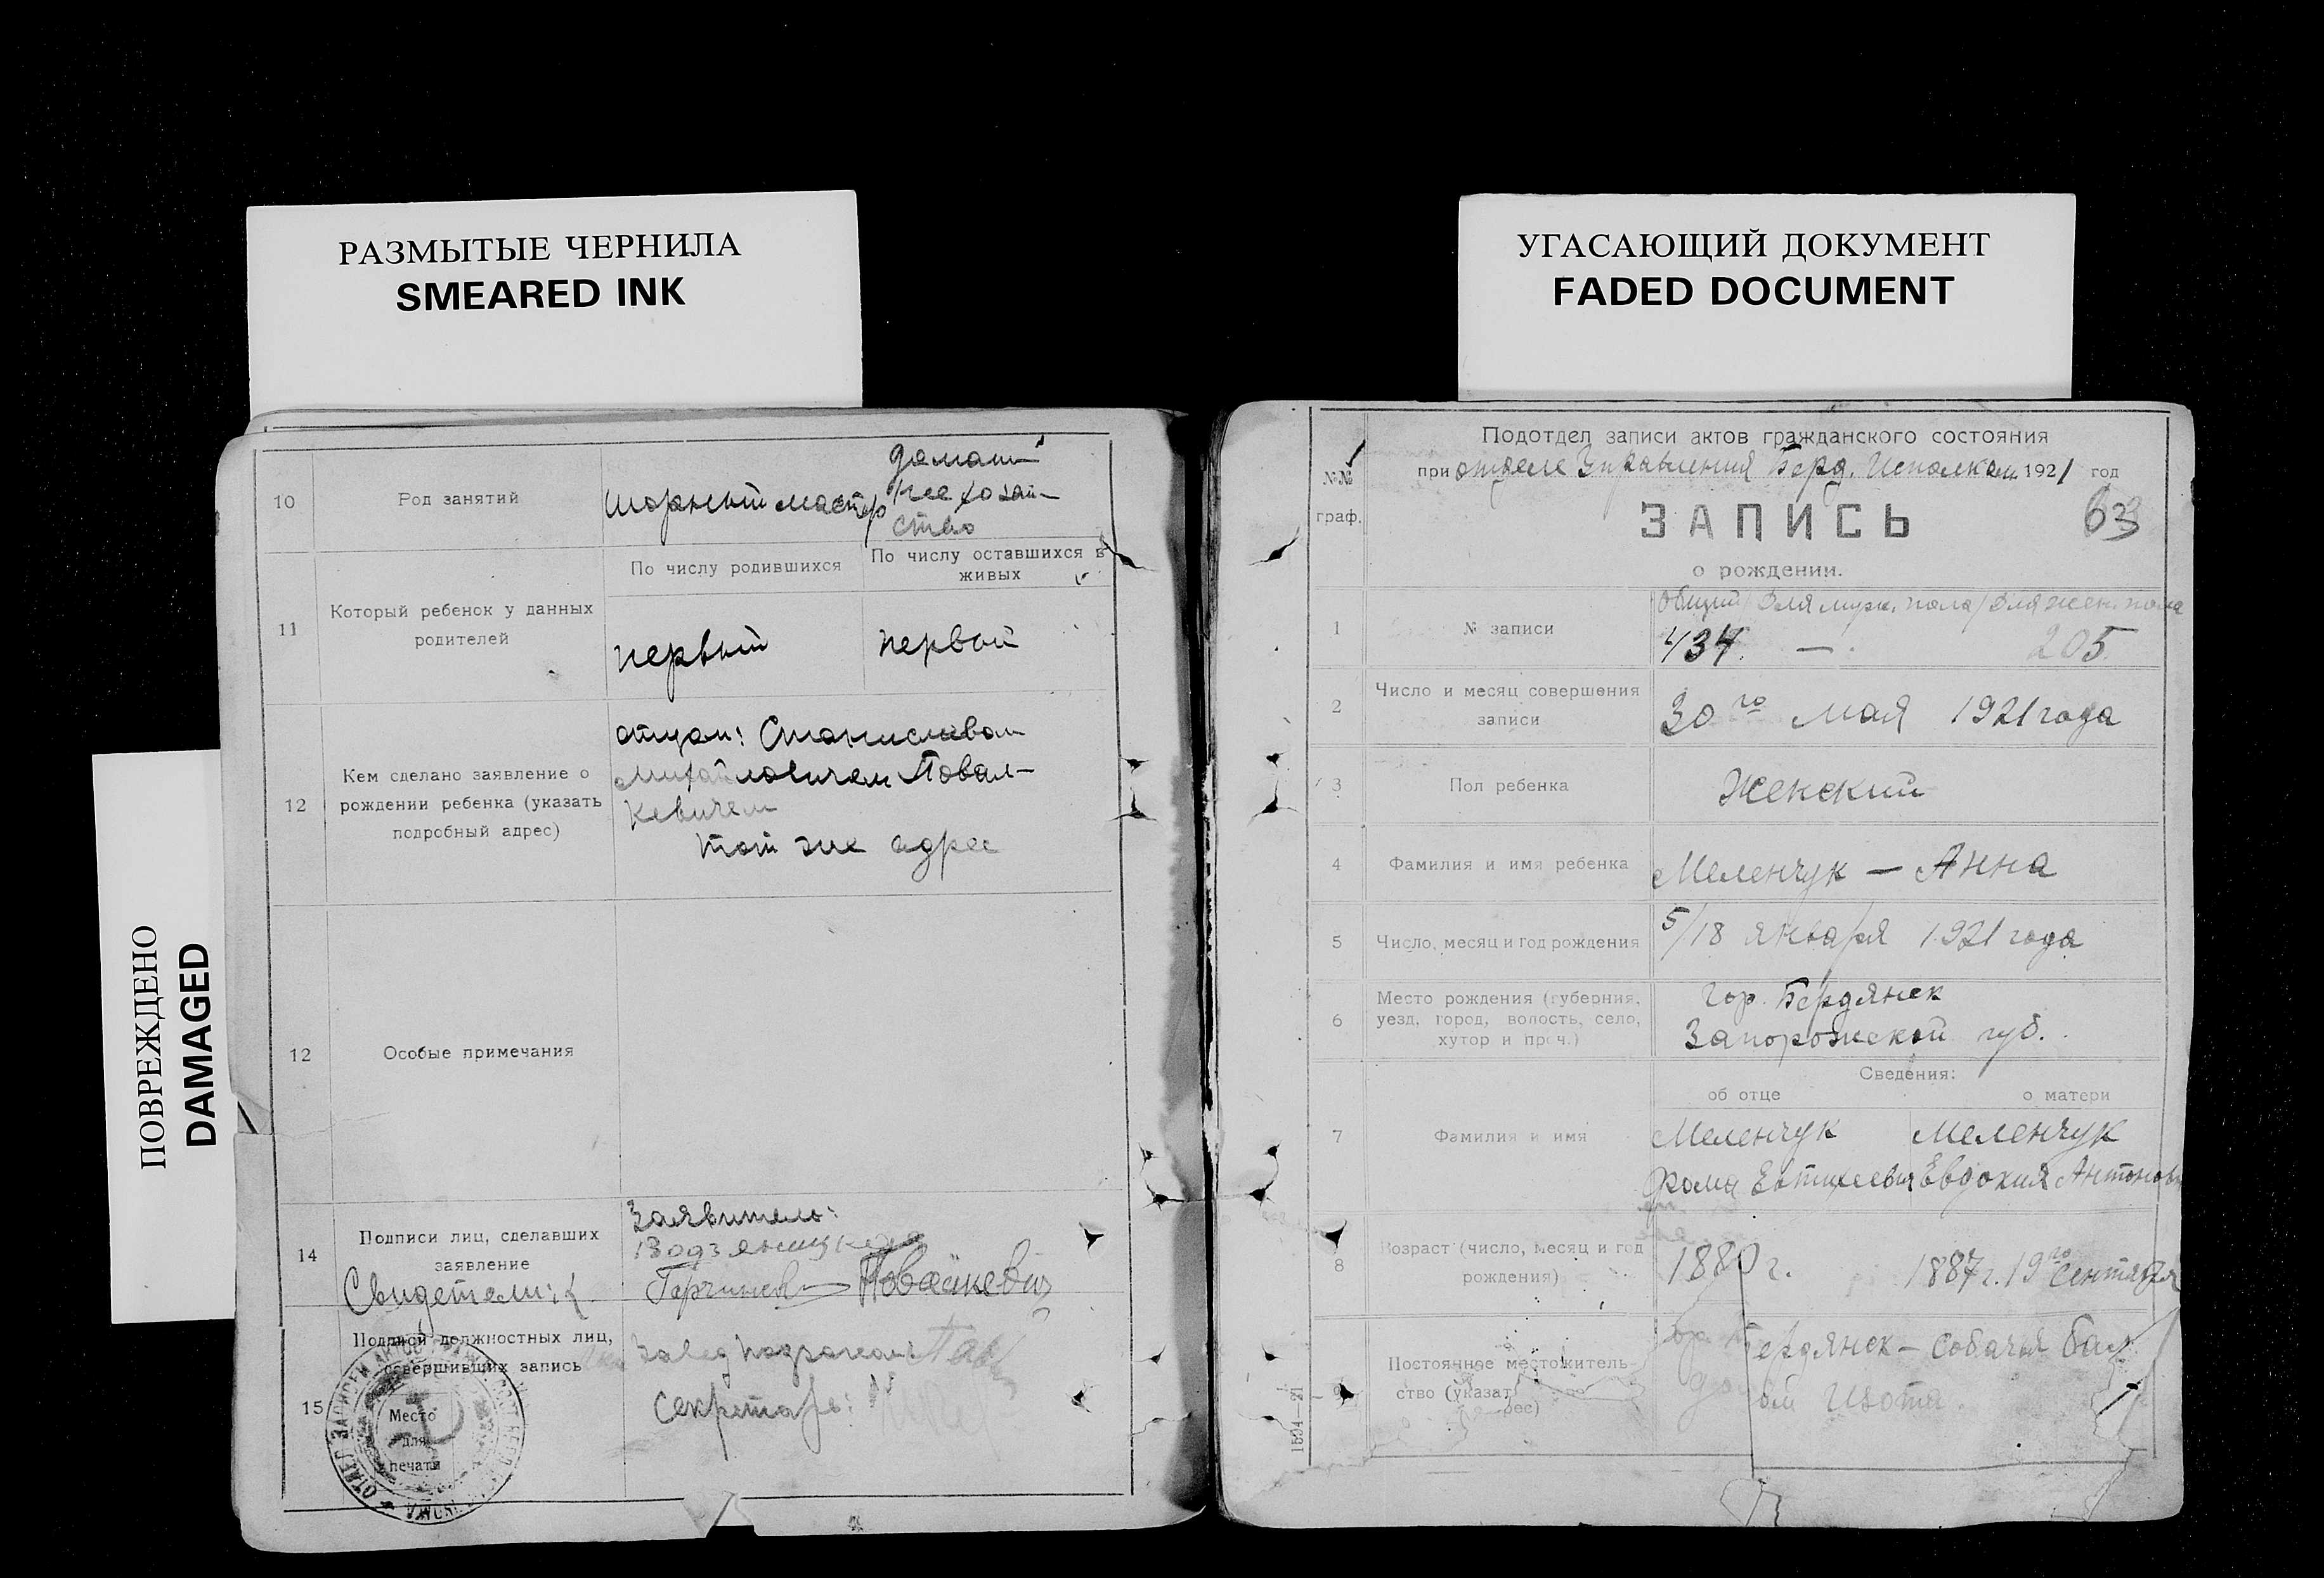 РАЗМЫТЫЕ ЧЕРНИЛА
SMEARED INK
УГАСАЮЩИЙ ДОКУМЕНТ
FADED DOCUMENT
ПОВРЕЖДЕНО
DAMAGED
10
Род занятий
шорный мастер
домаш
нее хозяй-
ство
11
Который ребенок у данных
родителей
По числу родившихся
По числу оставшихся в
живых
первый
первой
12
Кем сделано заявление о
рождении ребенка (указать
подробный адрес)
отцом: Станиславом
Михайловичем Повал-
кевичем
тот же адрес
12
Особые примечания
14
Подписи лиц, сделавших
заявление
Свидетели:
Заявитель:
15
Подписи должностных лиц,
совершивших запись
Место
для
печати
Секретарь:
№№
граф.
Подотдел записи актов гражданского состояния
при отделе Управления Берд. Исполком 1921 год
ЗАПИСЬ
63
о рождении.
1
№ записи
Общий / Для муж. пола / Для жен. пола
434. — 205
2
Число и месяц совершения
записи
30го мая 1921 года
3
Пол ребенка
Женский
4
Фамилия и имя ребенка
Меленчук — Анна
5
Число, месяц и год рождения
5/18 января 1921 года
6
Место рождения (губерния,
уезд, город, волость, село,
хутор и проч.)
Гор. Бердянск
Запорожской губ.
Сведения:
об отце
о матери
7
Фамилия и имя
Меленчук
Фома Евтихеевич
Меленчук
Евдокия Антоновн
8
Возраст (число, месяц и год
рождения)
1880 г.
1887 г. 19го сентября
9
Постоянное местожитель-
ство (указать
Бердянск — Собачья бал
Изота.
1504—21